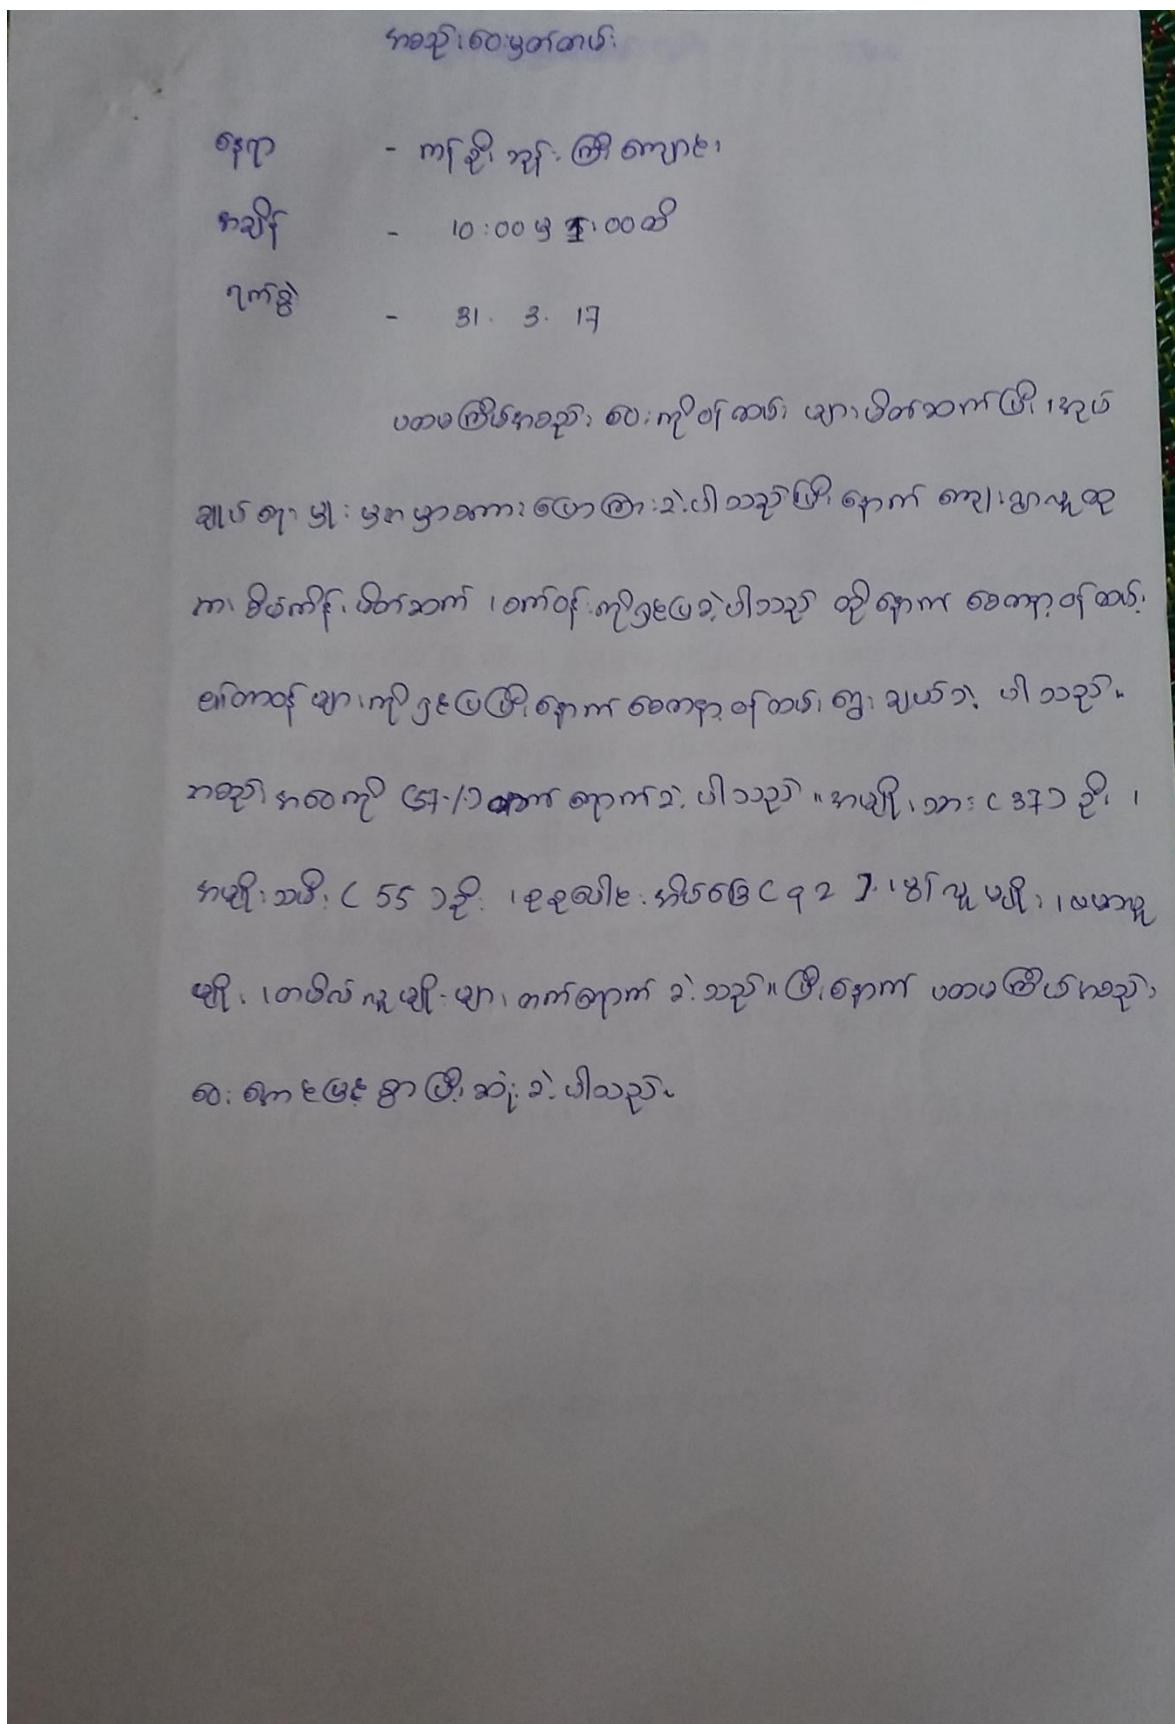 အစည်းဝေးမှတ်တမ်း
နေရာ - ကန်ဦးဘုန်းကြီးကျောင်း
အချိန် - 10:00 မှ 1:00 ထိ
ရက်စွဲ - 31. 3. 17
ပထမကြိမ်အစည်းဝေးကိုဝန်ထမ်းများမိတ်ဆက်ပြီး၊အုပ်
ချုပ်ရေးမှူးမှအမှာစကားပြောကြားခဲ့ပါသည်ပြီးနောက် ကျေးရွာလူထု
အား စီမံကိန်းမိတ်ဆက်၊ စက်ဝန်းကိုရှင်းပြခဲ့ပါသည် ထို့နောက် စေတနာ့ဝန်ထမ်း
၏တာဝန်များကိုရှင်းပြပြီးနောက် စေတနာ့ဝန်ထမ်းရွေးချယ်ခဲ့ပါသည်။
အစည်းအဝေးကို (57%) တက်ရောက်ခဲ့ပါသည်။ အမျိုးသား (37) ဦး၊
အမျိုးသမီး (55) ဦး၊ စုစုပေါင်းအိမ်ခြေ (92)၊ မွန်လူမျိုး၊ ဗမာလူ
မျိုး၊ တမီလ်လူမျိုးများတက်ရောက်ခဲ့သည်။ ပြီးနောက် ပထမကြိမ်အစည်း
ဝေးအောင်မြင်စွာပြီးဆုံးခဲ့ပါသည်။